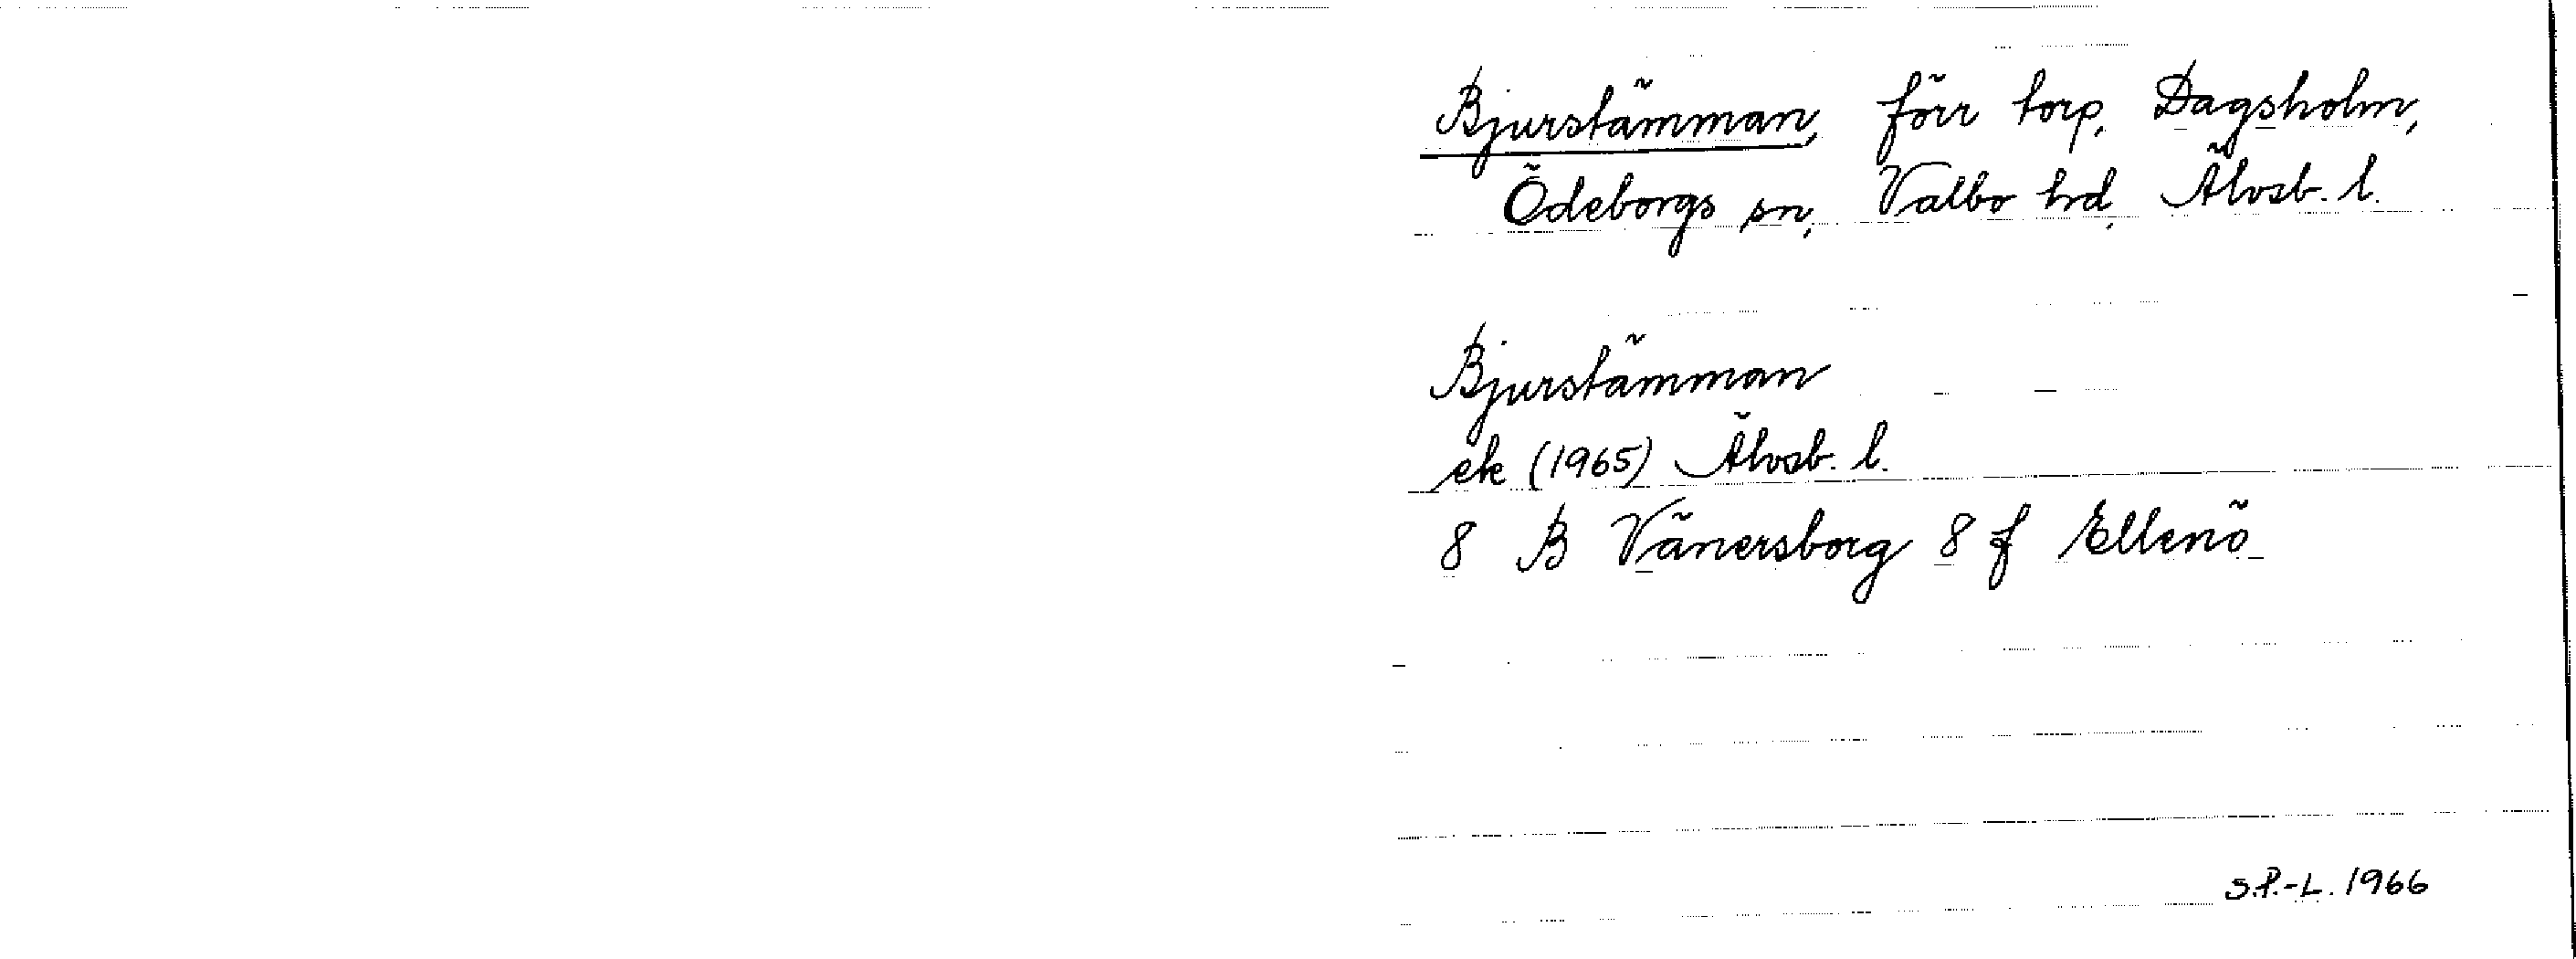 Bjurstämman, förr torp, Dagsholm,
Ödeborgs sn, Valbo hd, Älvsb. l.
Bjurstämman
ek (1965) Älvsb. l.
8 B Vänersborg 8 f Ellenö
S.P.-L. 1966